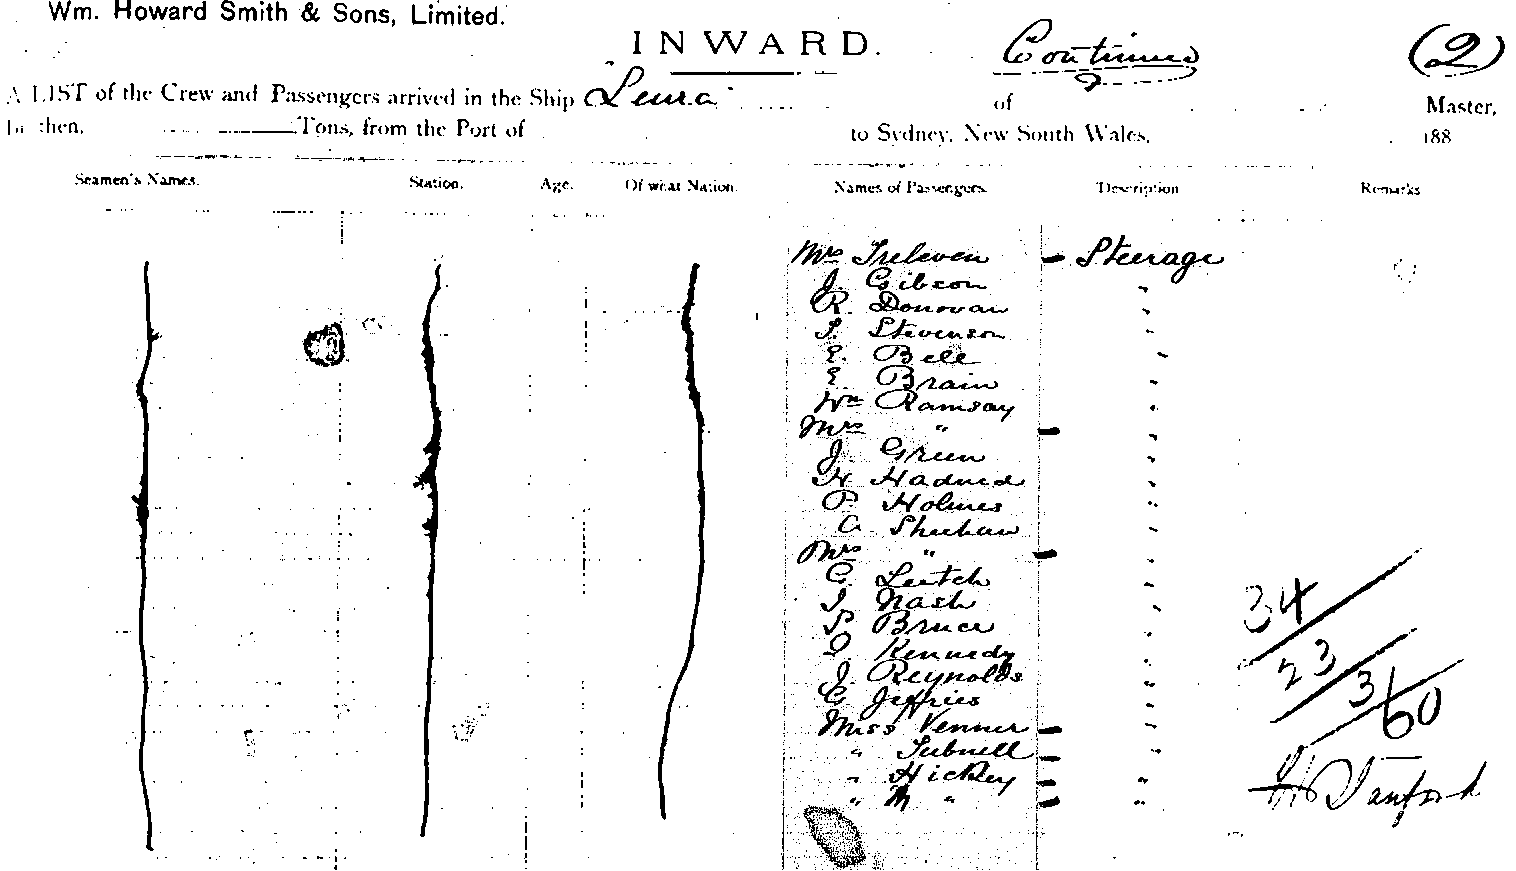 Wm. Howard Smith & Sons, Limited.
INWARD.
Continued
(2)
A LIST of the Crew and Passengers arrived in the Ship "Leura" of Master,
Burthen, Tons, from the Port of to Sydney, New South Wales, 188
Seamen's Names. Station. Age. Of what Nation. Names of Passengers. Description Remarks
Mrs Treleven - Steerage
J. Gibson "
R. Donovan "
S. Stevenson "
E. Bell "
E. Brain "
Wm Ramsay "
Mrs " - "
J. Green "
H "
P. Holmes "
C. Sheehan "
Mrs " - "
C. Leitch "
J. Nash "
P. Bruce "
J. Kennedy "
J. Reynolds "
C. Jeffries "
Miss Venner - "
" - "
" Hickey - "
" M " - "
34
23
3/60